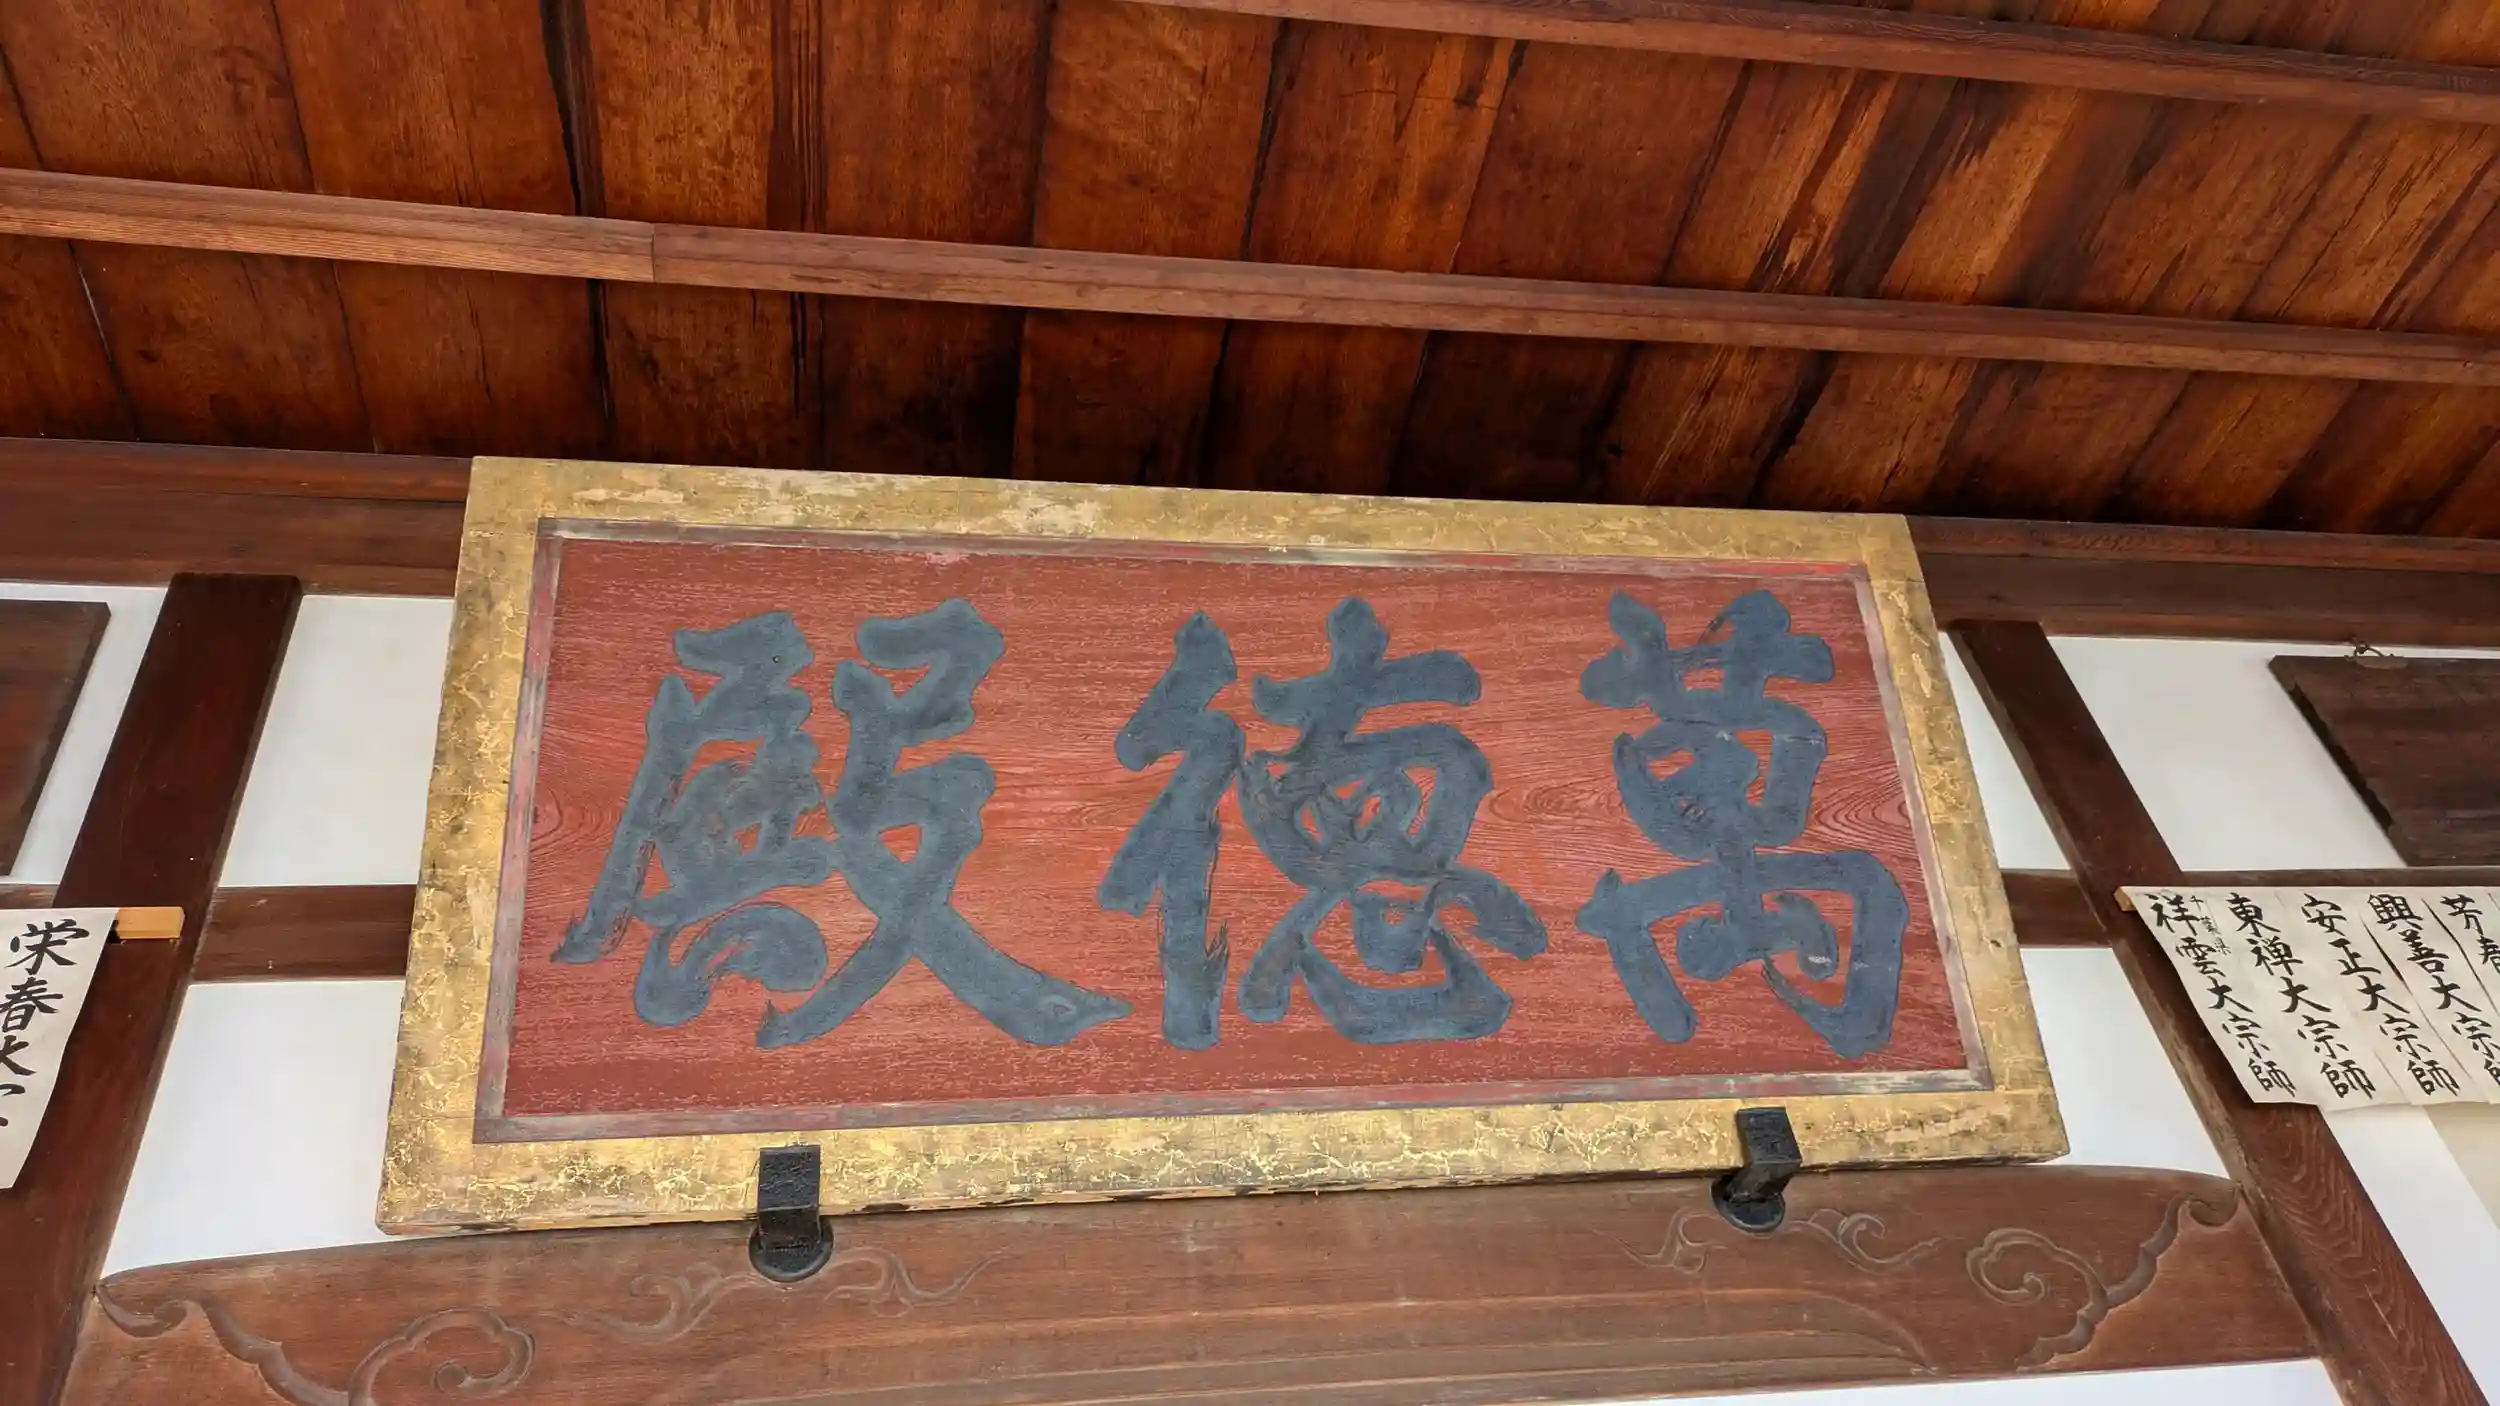 萬德殿
芳春
興善大宗師
安正大宗師
東禅大宗師
祥雲大宗師
栄春大